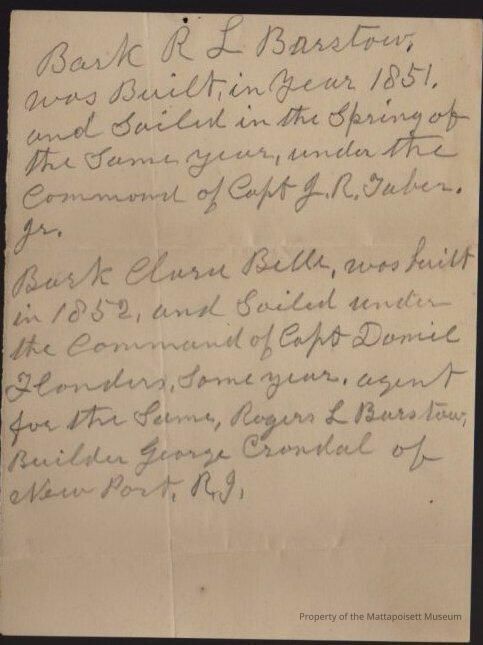 Bark R L Barstow,
was Built, in Year 1851.
and Sailed in the Spring of
the Same year, under the
Command of Capt J. R. Taber.
Jr.
Bark Clara Bell, was built
in 1852, and Sailed under
the Command of Capt Daniel
Flanders, Same year. agent
for the Same, Rogers L Barstow,
Builder George Crandal of
New Port, R.I,
Property of the Mattapoisett Museum